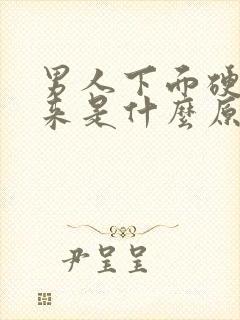 男人下而硬
来是什麼原
尹呈呈